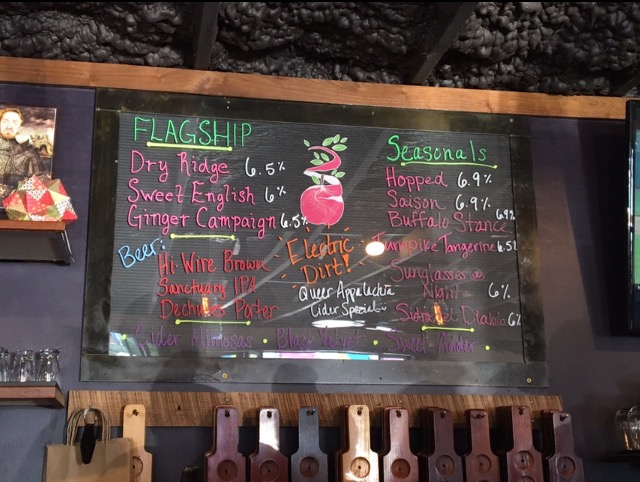 FLAGSHIP
Dry Ridge 6.5%
Sweet English 6%
Ginger Campaign 6.5%
Beer:
Hi-Wire Brown
Sanctuary IPA
Dechutes Porter
Electric
Dirt!
Queer Appalachia
Cider Special
Seasonals
Hopped 6.9%
Saison 6.9%
Buffalo Stance 6.9%
Turnpike Tangerine 6.5%
Sunglasses @
Night 6%
Sidra del Diablo 6%
Cider Mimosas • Black Velvet • Sweet Ander